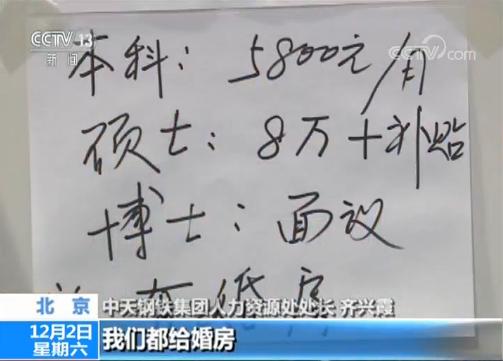 CCTV 13
新闻
CCTV.com
本科：5800元/月
硕士：8万+补贴
博士：面议
婚房
北京
中天钢铁集团人力资源处处长 齐兴霞
12月2日
星期六
我们都给婚房